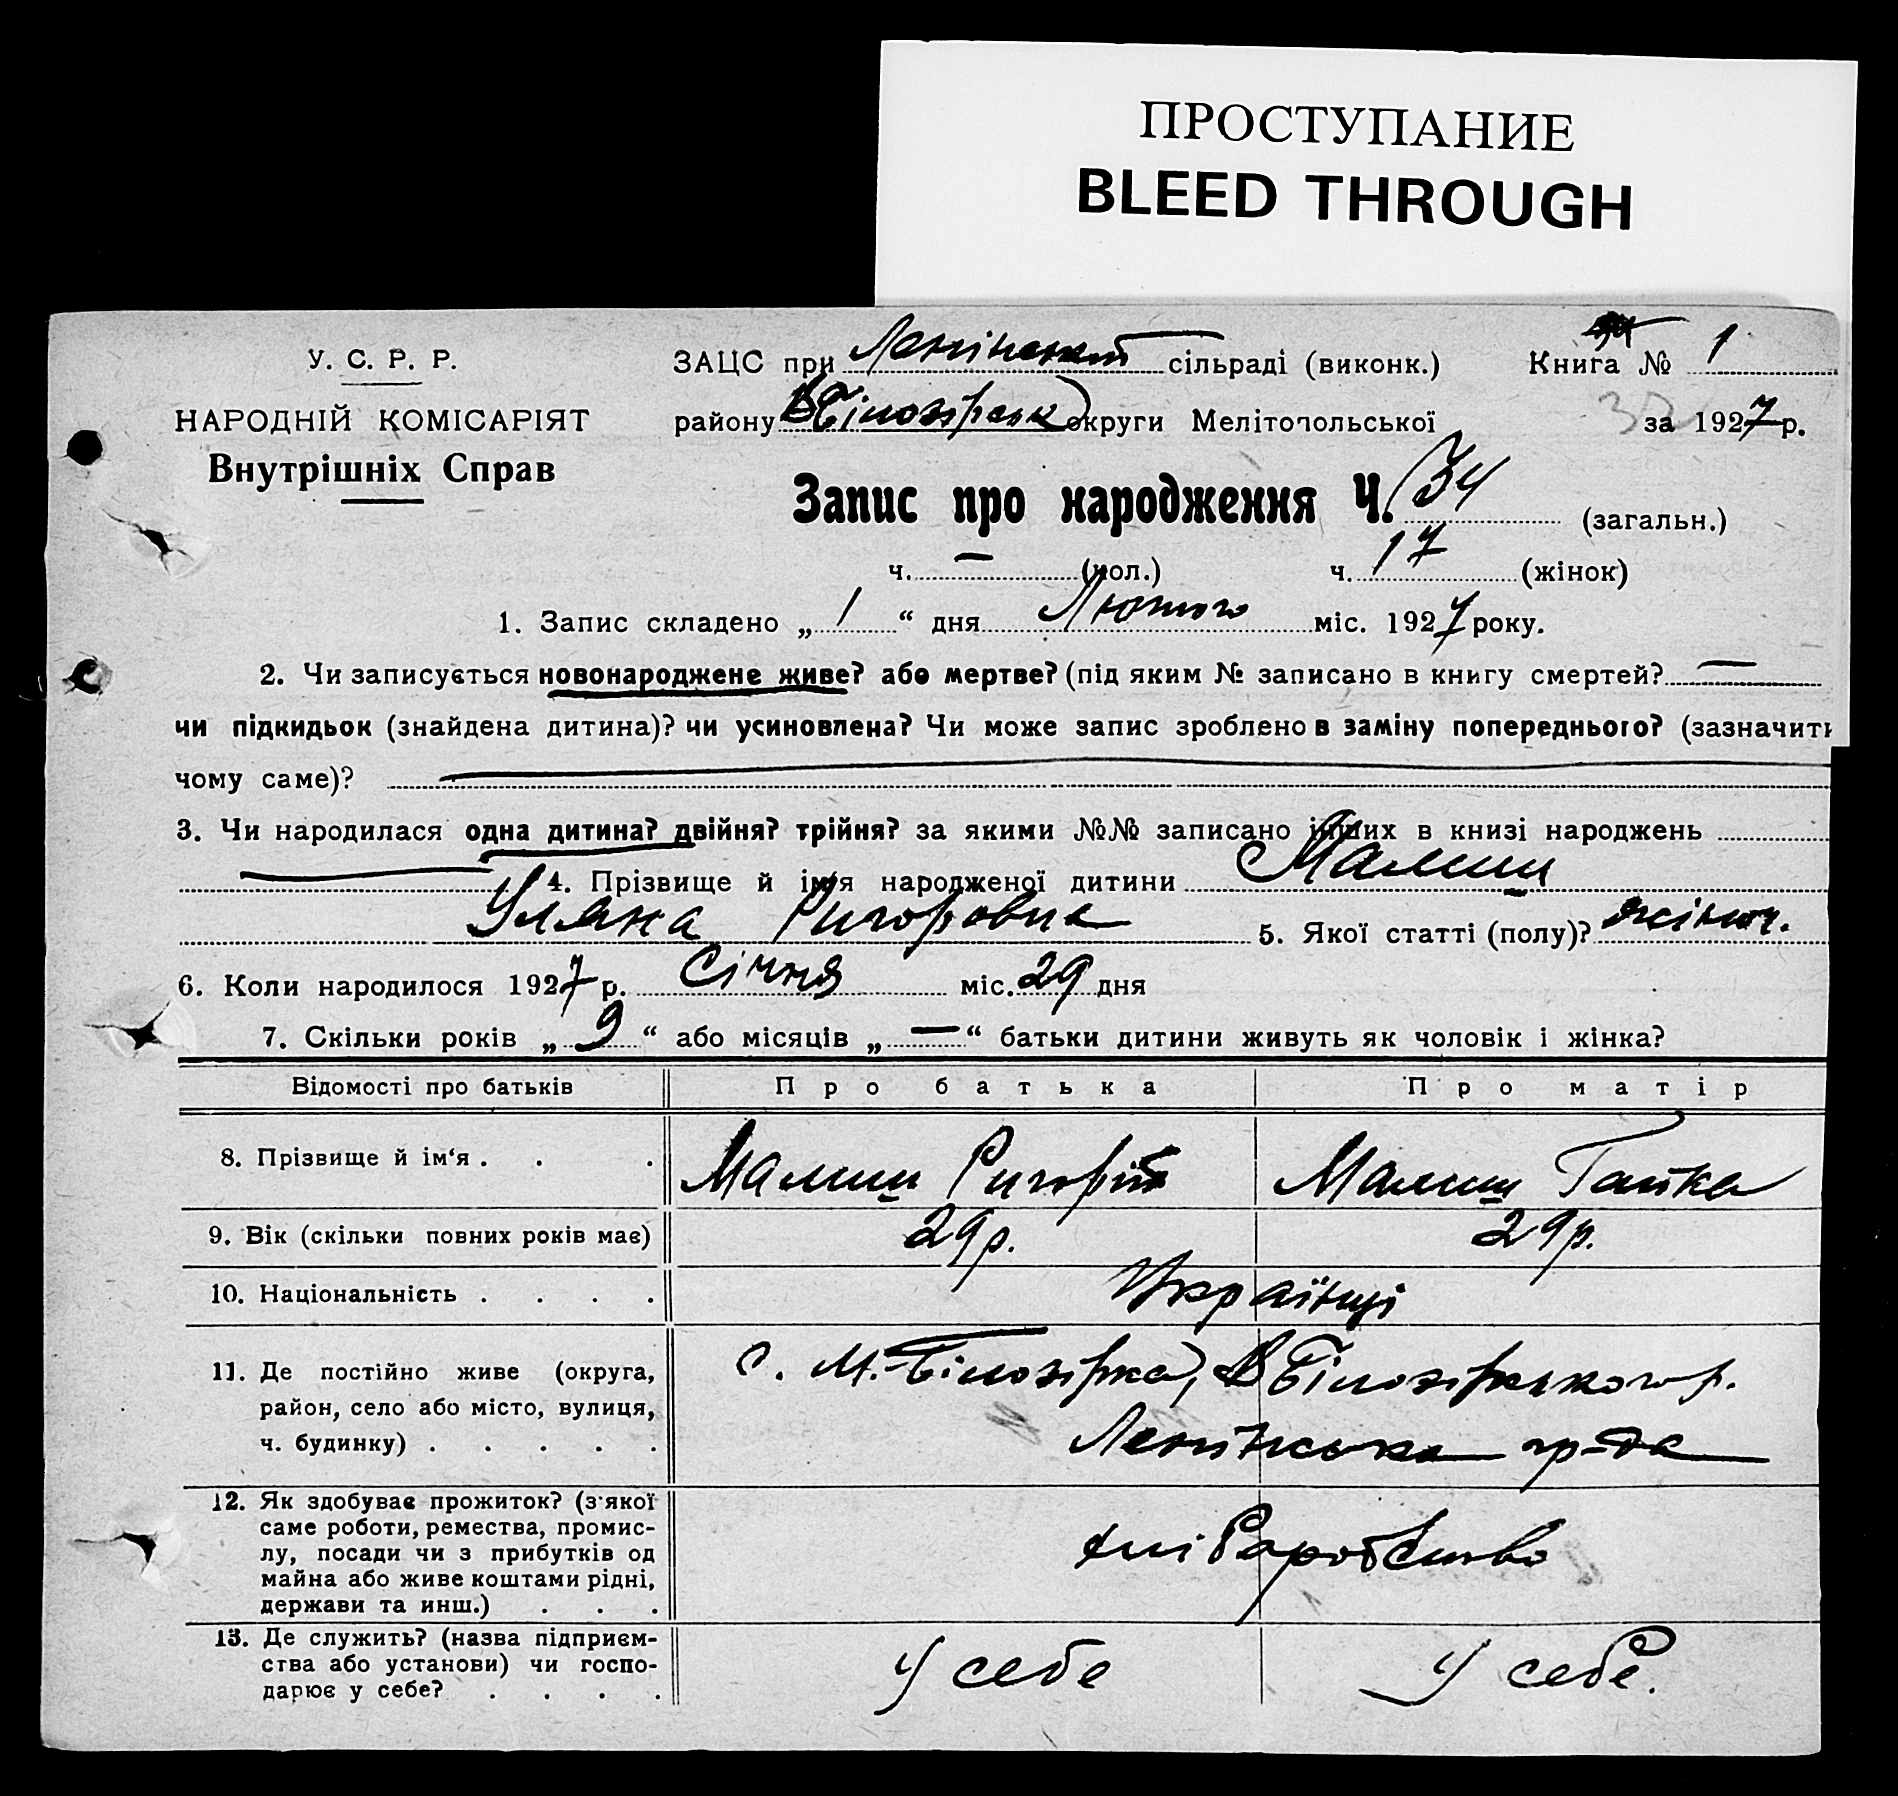 ПРОСТУПАНИЕ
BLEED THROUGH
У. С. Р. Р.
НАРОДНІЙ КОМІСАРІЯТ
Внутрішніх Справ
ЗАЦС при Ленінській сільраді (виконк.) Книга № 1
району ВБілозірськ округи Мелітопольської за 1927 р.
Запис про народження Ч. 34 (загальн.)
ч. — (чол.) ч. 17 (жінок)
1. Запис складено „ 1 “ дня Лютого міс. 1927 року.
2. Чи записується новонароджене живе? або мертве? (під яким № записано в книгу смертей? —
чи підкидьок (знайдена дитина)? чи усиновлена? Чи може запис зроблено в заміну попереднього? (зазначить
чому саме)? —
3. Чи народилася одна дитина? двійня? трійня? за якими №№ записано інших в книзі народжень
— 4. Прізвище й ім'я народженої дитини Малиш
Уляна Ригоровна 5. Якої статті (полу)? жіноч.
6. Коли народилося 1927 р. Січня міс. 29 дня
7. Скільки років „ 9 “ або місяців „ — “ батьки дитини живуть як чоловік і жінка?
Відомості про батьків Про батька Про матір
8. Прізвище й ім‘я . . . Малиш Ригорій Малиш Гапка
9. Вік (скільки повних років має) 29 р. 29 р.
10. Національність . . . . Українці
11. Де постійно живе (округа,
район, село або місто, вулиця,
ч. будинку) . . . . .
с. М.-Білозірка, ВБілозірського р.
Ленінська гр-да
12. Як здобуває прожиток? (з'якої
саме роботи, ремества, промис-
лу, посади чи з прибутків од
майна або живе коштами рідні,
держави та инш.) . . .
хліборобство
13. Де служить? (назва підприєм-
ства або установи) чи госпо-
дарює у себе? . . . .
У себе У себе.